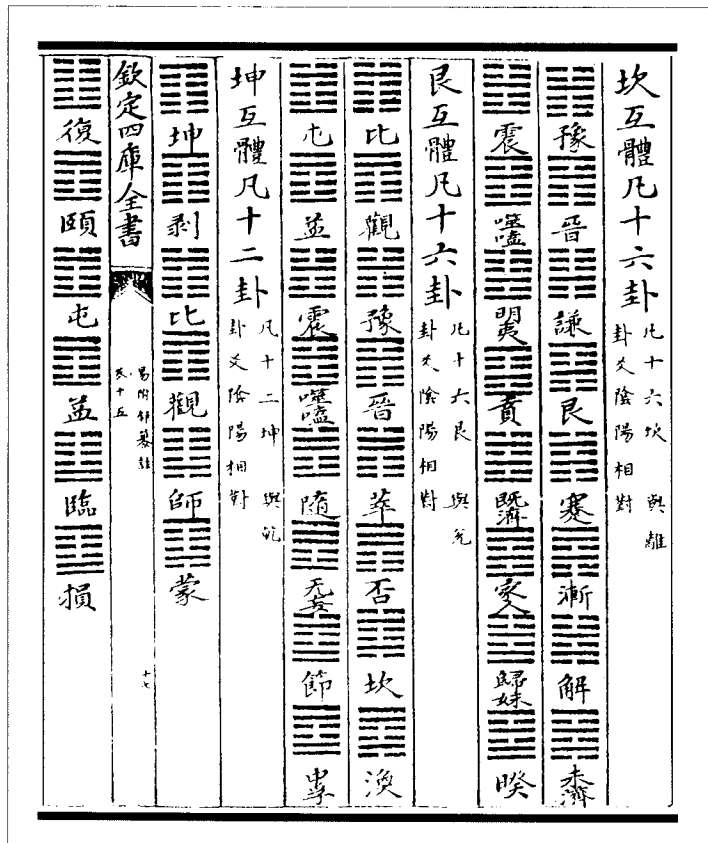 坎互體凡十六卦 凡十六坎與離
卦爻陰陽相對
豫 晉 謙 艮 蹇 漸 解 未濟
震 噬嗑 明夷 賁 既濟 家人 歸妹 睽
艮互體凡十六卦 凡十六艮與兌
卦爻陰陽相對
比 觀 豫 晉 萃 否 坎 渙
屯 益 震 噬嗑 隨 无妄 節 中孚
坤互體凡十二卦 凡十二坤與乾
卦爻陰陽相對
坤 剥 比 觀 師 蒙
欽定四庫全書
易附錄纂註
卷十五
十七
復 頤 屯 益 臨 損